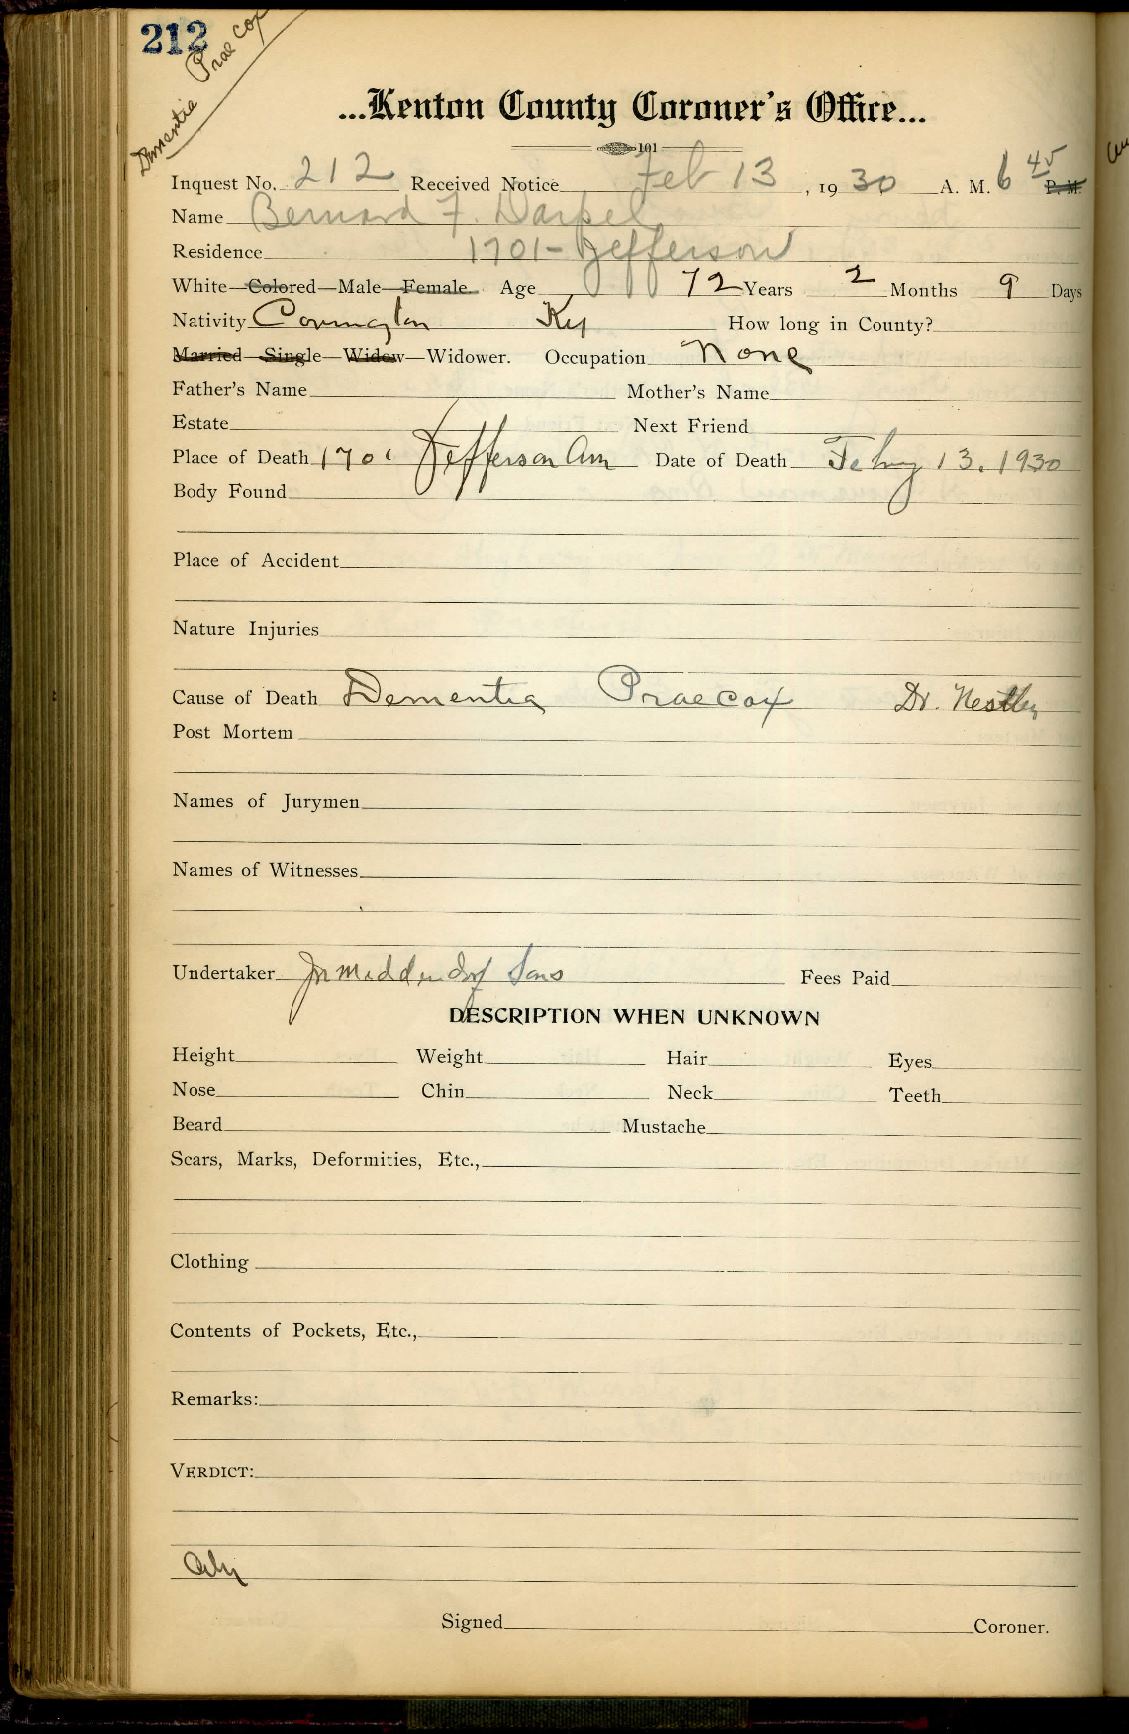 212
Dementia Praecox
...Kenton County Coroner's Office...
101
Inquest No. 212 Received Notice Feb 13, 1930 A. M. 6 45 P. M.
Name Bernard F. Darpel
Residence 1701 - Jefferson
White—Colored—Male—Female Age 72 Years 2 Months 9 Days
Nativity Covington Ky How long in County?
Married—Single—Widow—Widower. Occupation None
Father's Name Mother's Name
Estate Next Friend
Place of Death 1701 Jefferson Ave Date of Death Feby 13. 1930
Body Found
Place of Accident
Nature Injuries
Cause of Death Dementia Praecox Dr. Nestley
Post Mortem
Names of Jurymen
Names of Witnesses
Undertaker Jn Middendorf Sons Fees Paid
DESCRIPTION WHEN UNKNOWN
Height Weight Hair Eyes
Nose Chin Neck Teeth
Beard Mustache
Scars, Marks, Deformities, Etc.,
Clothing
Contents of Pockets, Etc.,
Remarks:
VERDICT:
Signed Coroner.